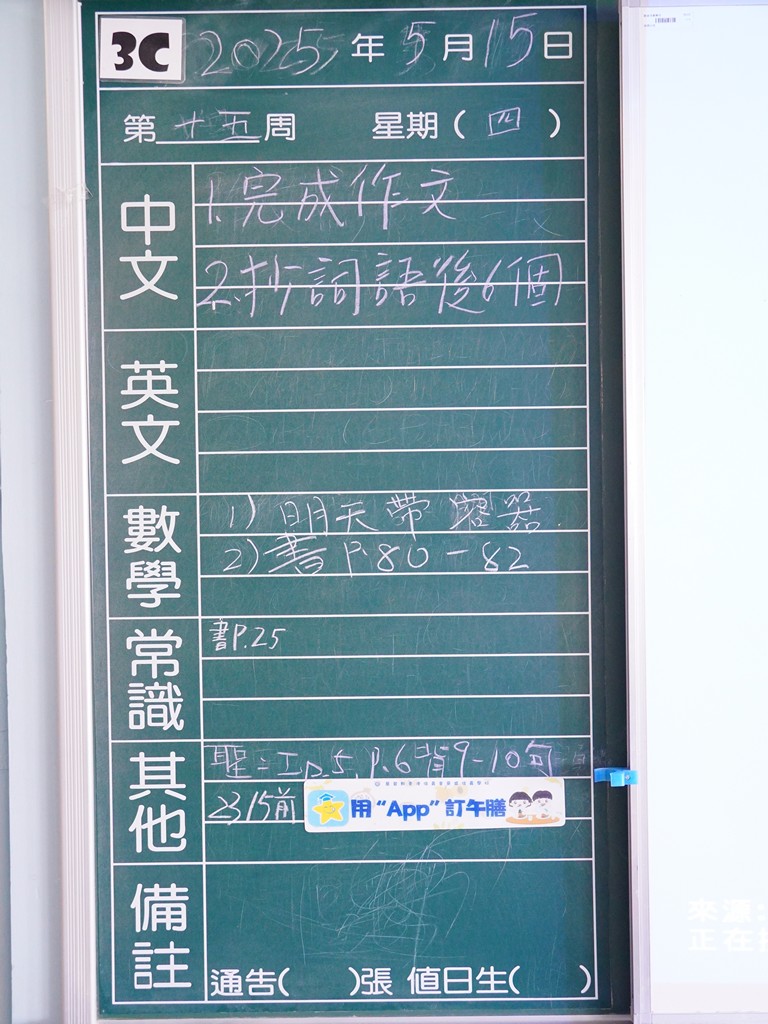 3C 2025年5月15日
第廿五周 星期(四)
中文
1.完成作文
2.抄詞語後6個
英文
數學
1) 明天帶容器
2) 書 P.80-82
常識
書P.25
其他
聖:工p.5, P.6背9-10句
23/5前
用“App”訂午膳
備註
通告( )張 值日生( )
來源:
正在